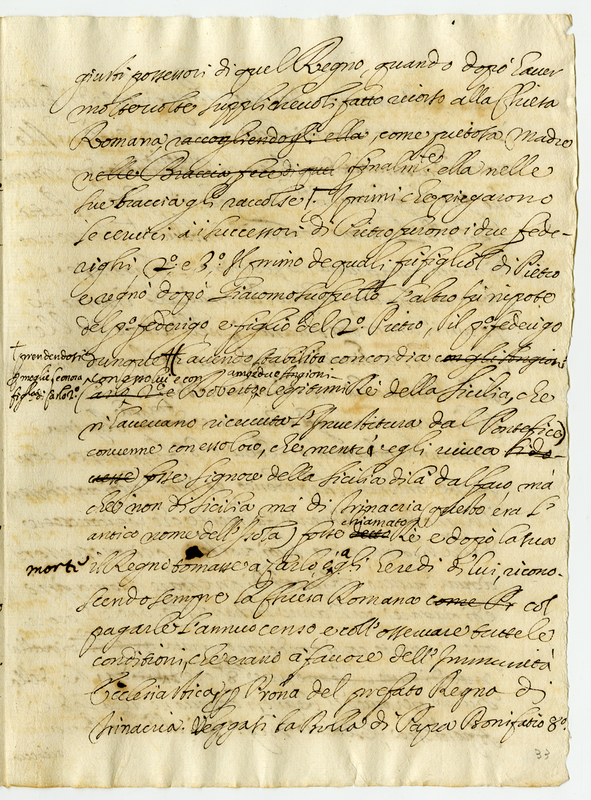 giusti possessori di quel Regno, quando dopò l'aver
molte volte supplichevoli fatto ricorso alla Chiesa
Romana raccogliendogli ella, come pietosa Madre
nelle Braccia fece di quel finalm.te ella nelle
sue braccia gli raccolse. I primi che piegarono
le cervici à i successori di Pietro furono i due fede-
righi 2.º e 3.º Il primo de quali fù figliol di Pietro
e regnò dopò Giacomo suo fratello L'altro fù nipote
del p.º federigo, e figlio del 2.º Pietro, il p.º federigo
dunque avendo stabilita concordia con gli Angioini
† prendendosi
p moglie Leonora
figl.a di Carlo 2.º
con esso lui e con amedue Angioini
e Roberto legitimi Rè della Sicilia, che
n'avevano ricevuta l'Investitura dal Pontefice)
convenne con esso loro, che mentre egli viveva
fosse Signore della Sicilia di là dal faro mà
che non di Sicilia mà di Trinacria (questo era l'
antico nome dell'Isola) fosse chiamato detto Rè e dopò la sua
morte il Regno tornasse a Carlo, ò agli Eredi di lui, ricono-
scendo sempre la Chiesa Romana come Pr col
pagarle l'annuo censo e coll'osservare tutte le
condizioni, che erano à favore dell'Immunità
Ecclesiastica del prefato Regno di
Trinacria. Veggasi la Bolla di Papa Bonifatio 8.º
33